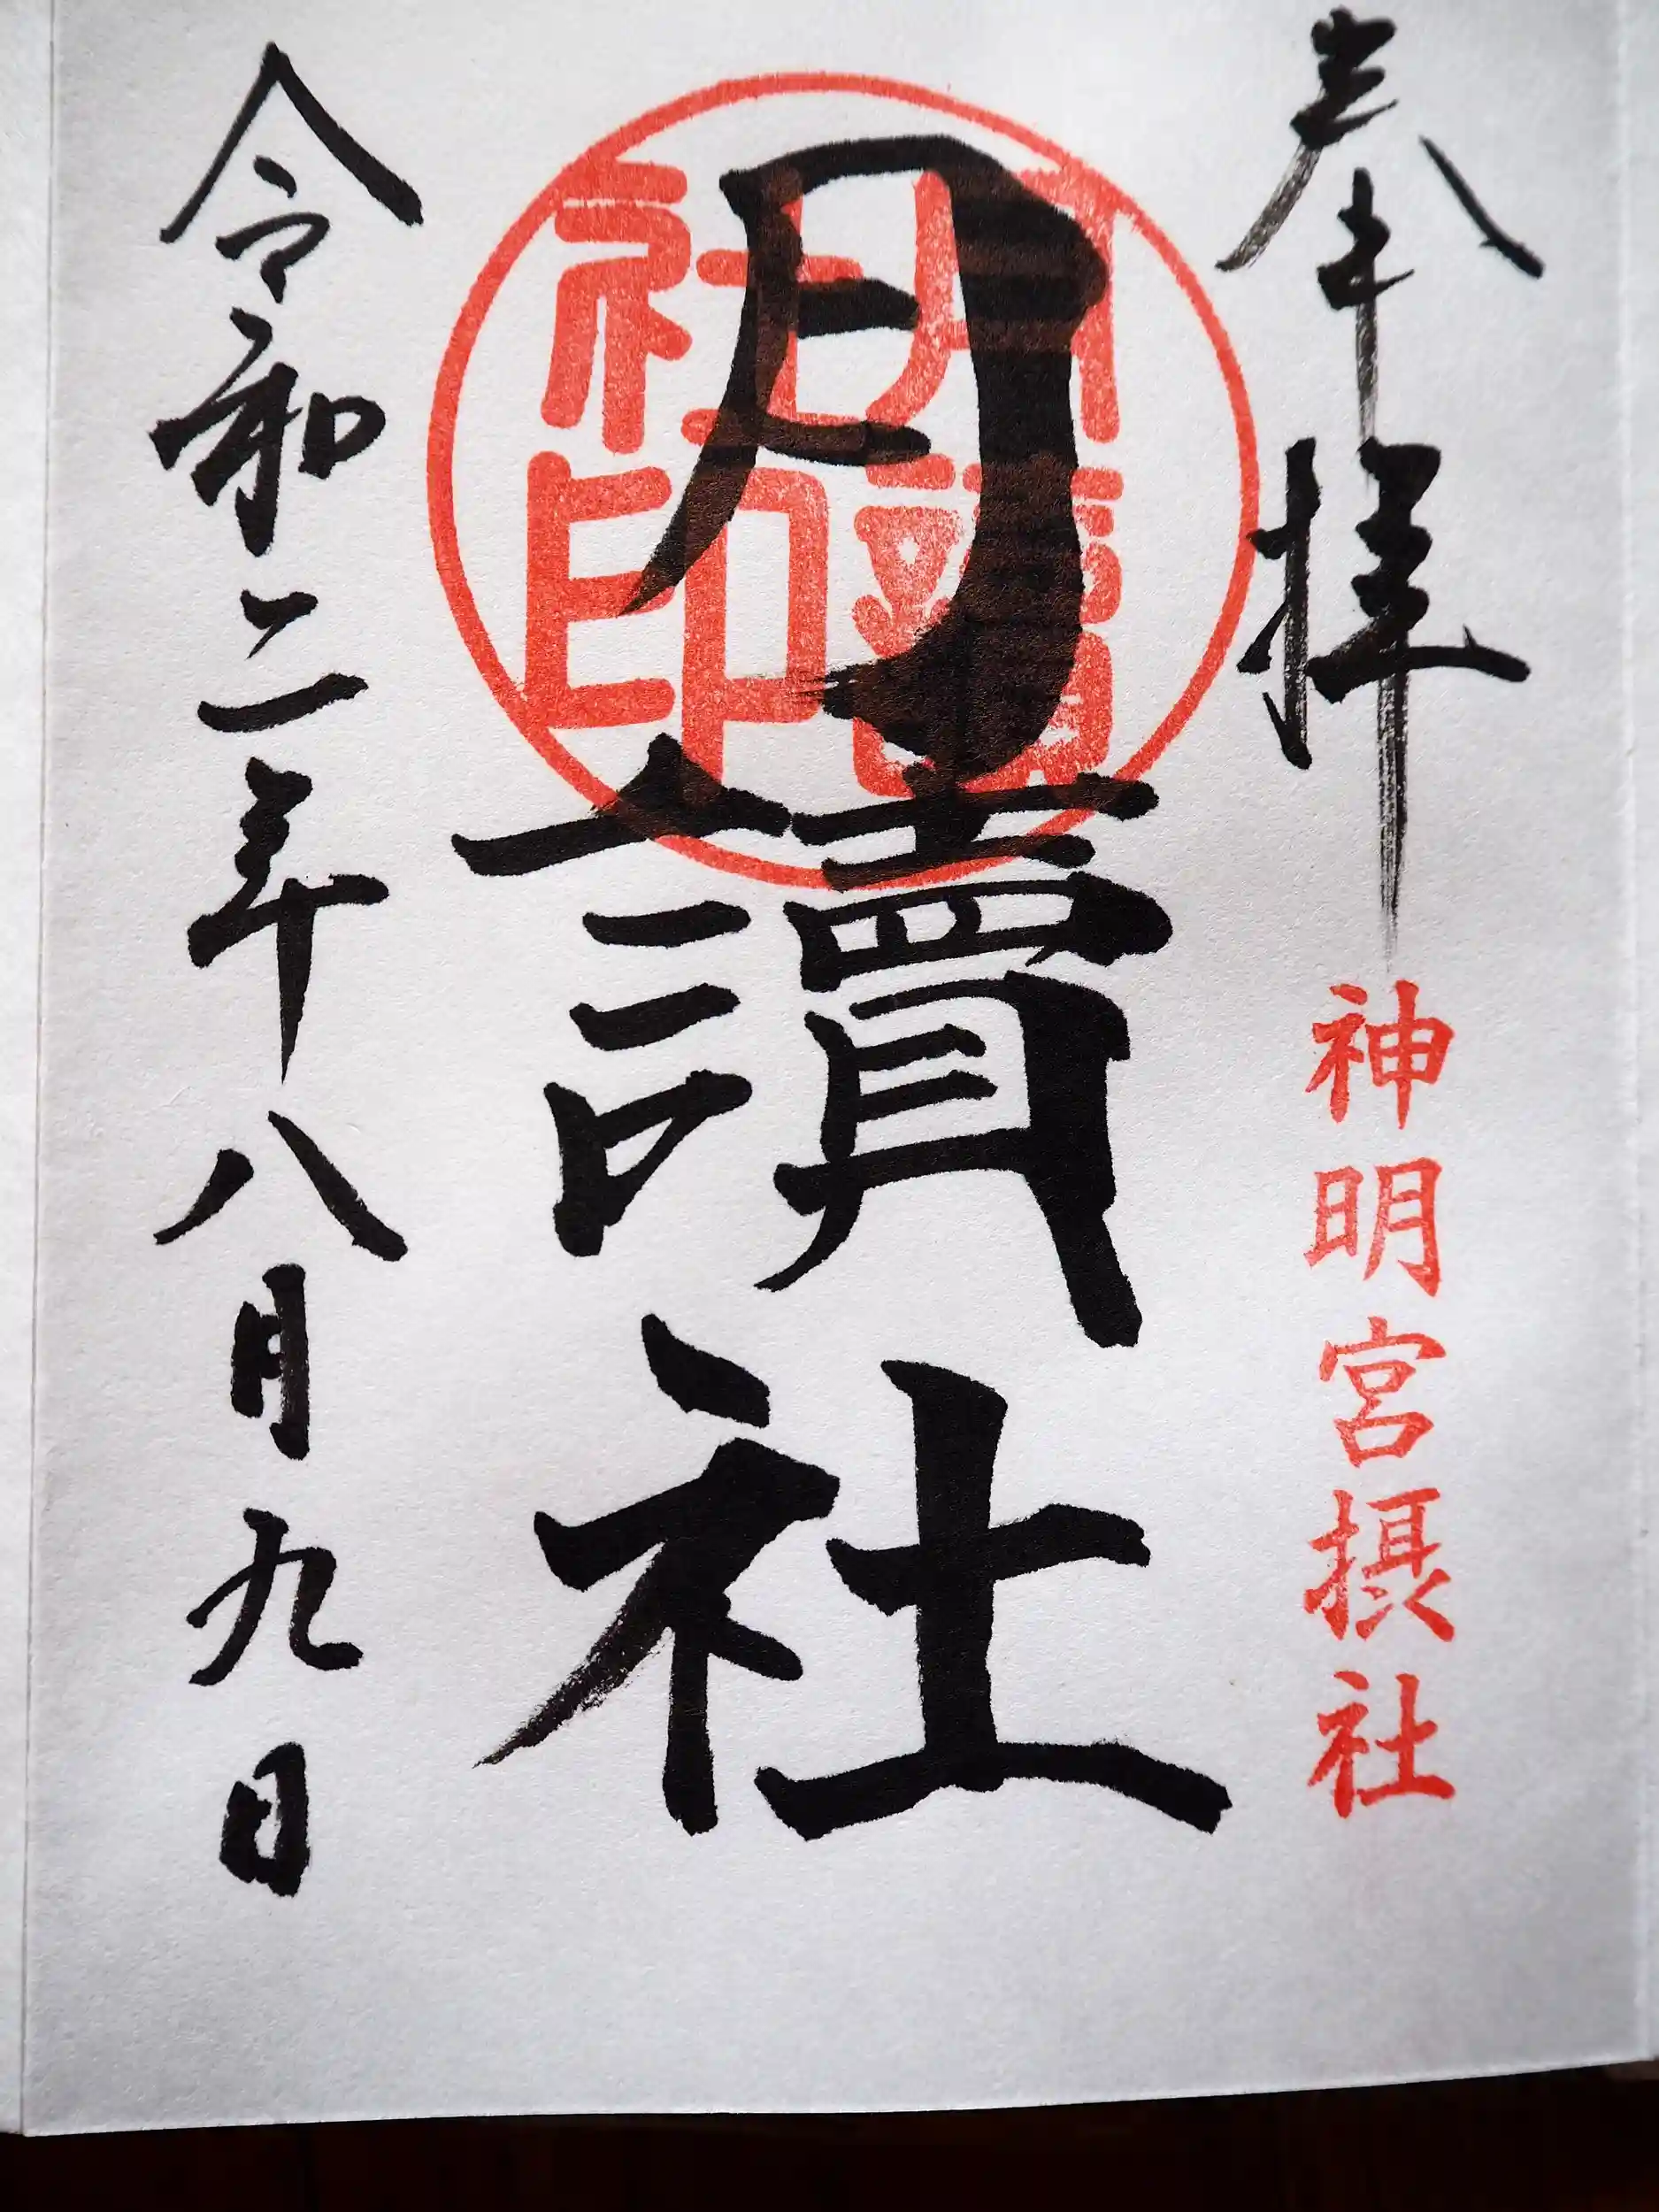 奉拝
神明宮摂社
月讀社
月讀社印
令和二年八月九日